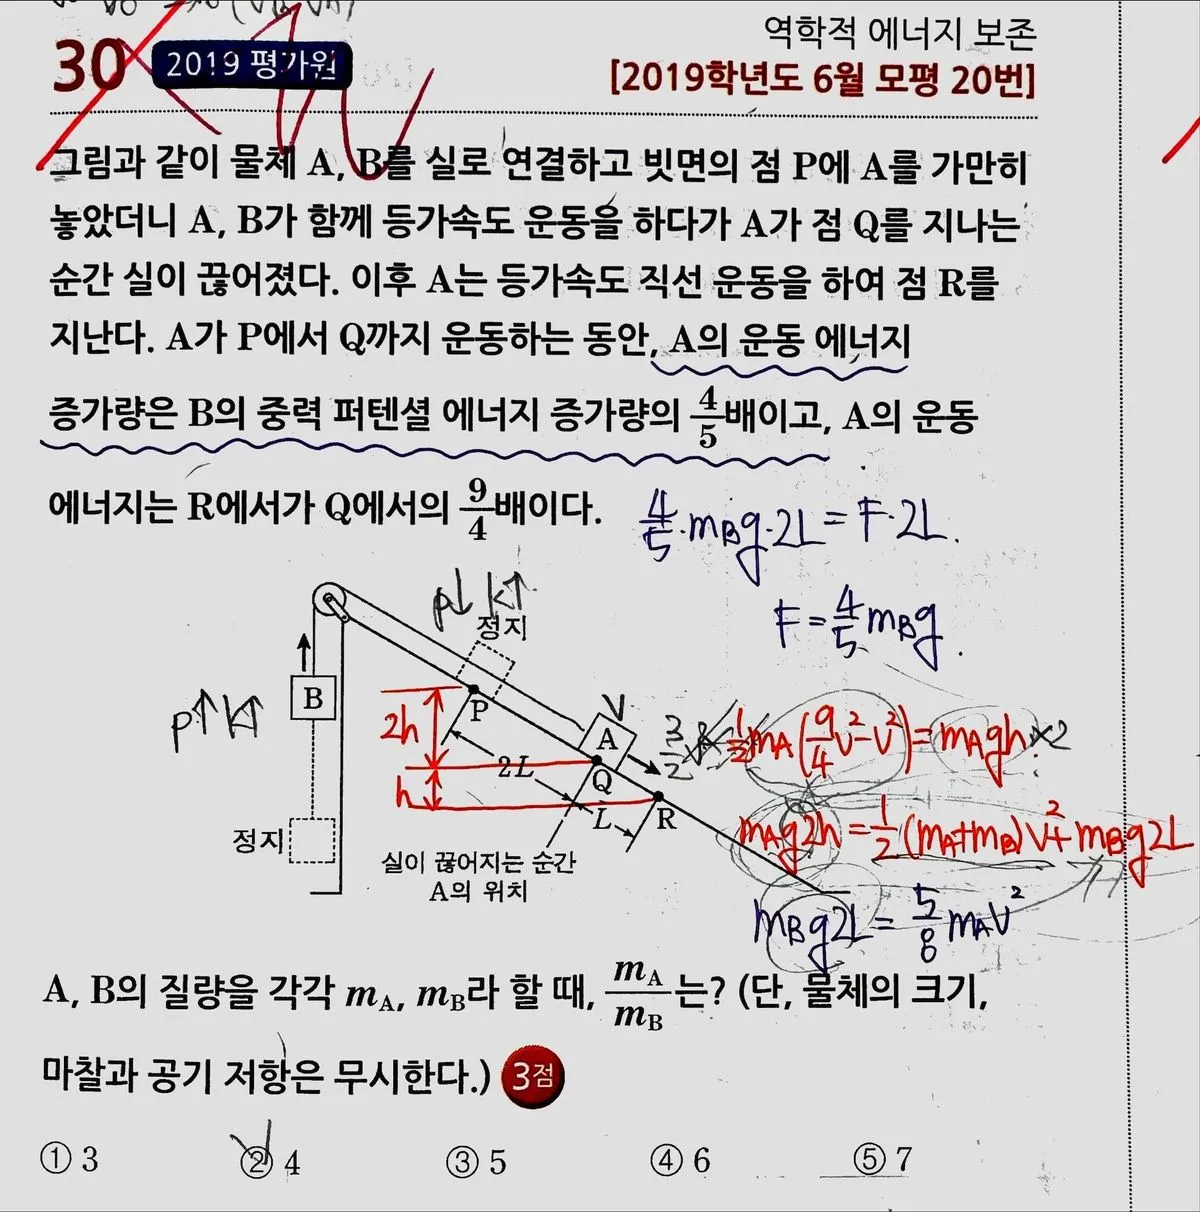 30 2019 평가원
역학적 에너지 보존
[2019학년도 6월 모평 20번]
그림과 같이 물체 A, B를 실로 연결하고 빗면의 점 P에 A를 가만히
놓았더니 A, B가 함께 등가속도 운동을 하다가 A가 점 Q를 지나는
순간 실이 끊어졌다. 이후 A는 등가속도 직선 운동을 하여 점 R를
지난다. A가 P에서 Q까지 운동하는 동안, A의 운동 에너지
증가량은 B의 중력 퍼텐셜 에너지 증가량의 4/5배이고, A의 운동
에너지는 R에서가 Q에서의 9/4배이다.
4/5·mBg·2L = F·2L.
F = 4/5 mBg.
P↓ K↑
정지
B
P↑ K↑
P
V
A
3/2 V
2h
2L
Q
h
L
R
정지
실이 끊어지는 순간
A의 위치
1/2 mA(9/4 V² - V²) = mAgh ×2
mAg2h = 1/2(mA+mB)V² + mBg2L
mBg2L = 5/8 mAV²
A, B의 질량을 각각 mA, mB라 할 때, mA/mB는? (단, 물체의 크기,
마찰과 공기 저항은 무시한다.) 3점
① 3 ② 4 ③ 5 ④ 6 ⑤ 7